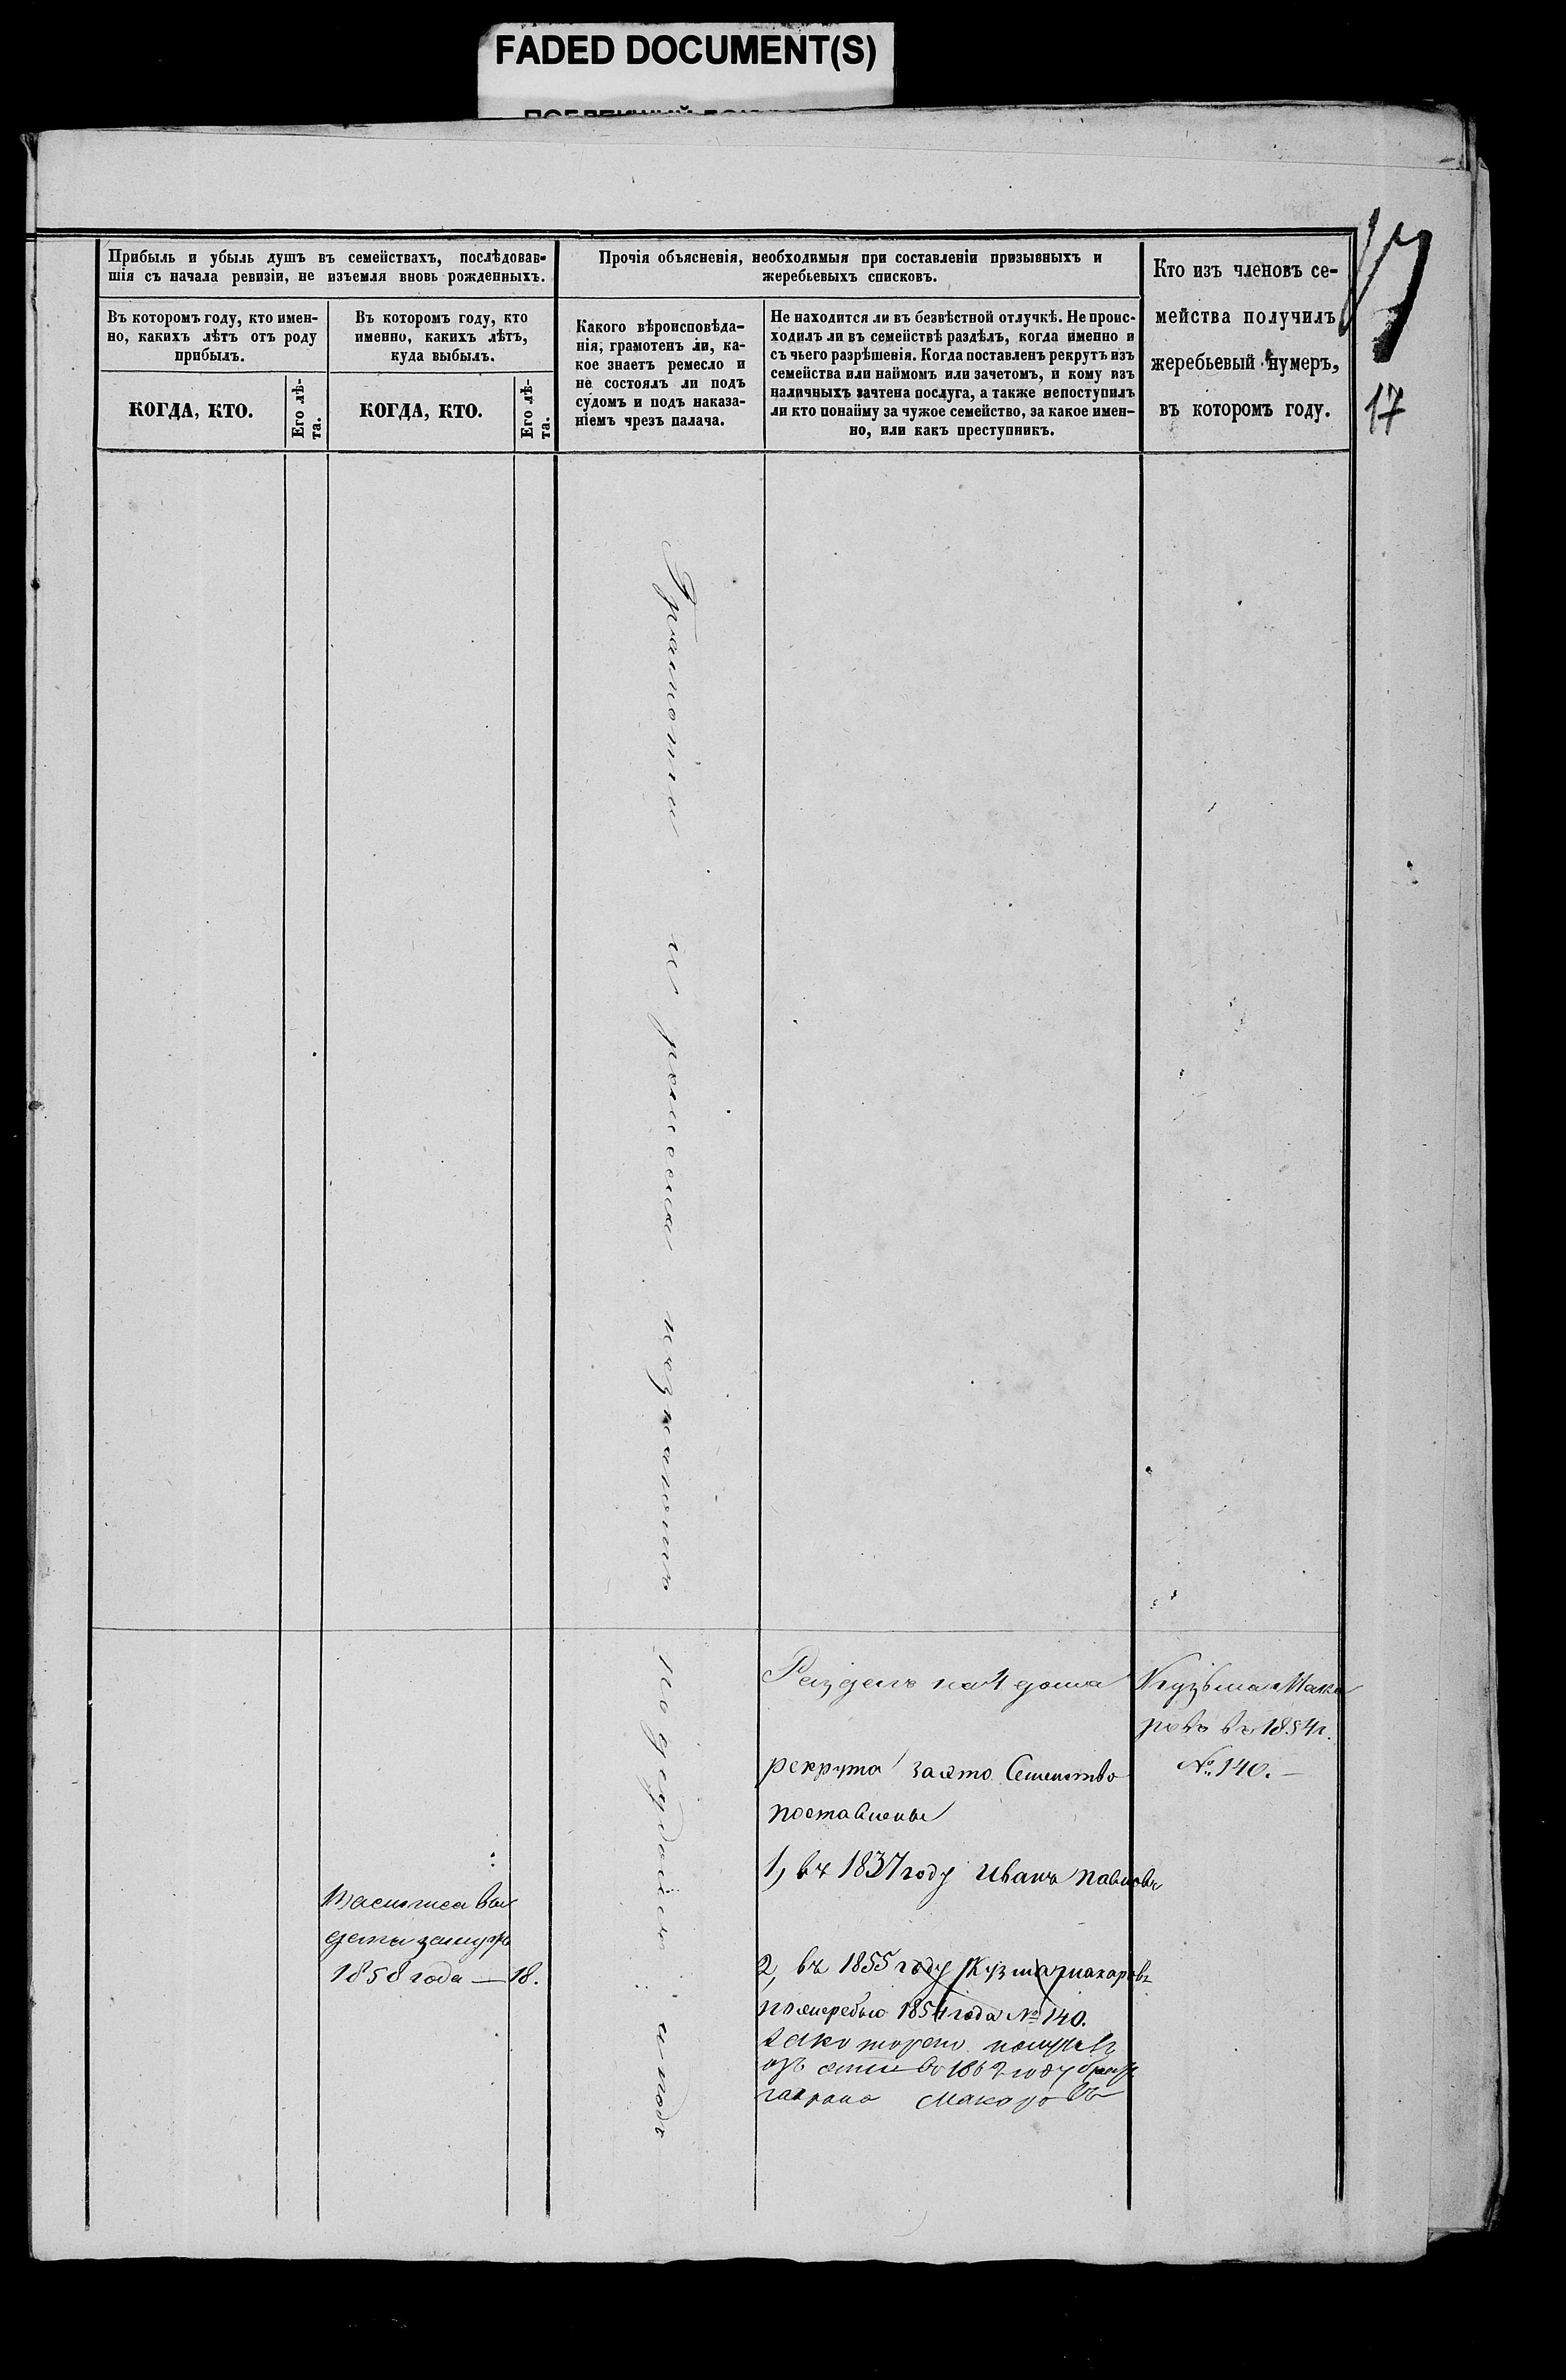 FADED DOCUMENT(S)
17
17
Прибыль и убыль душъ въ семействахъ, послѣдовав-
шія съ начала ревизіи, не изъемля вновь рожденныхъ.
Въ которомъ году, кто имен-
но, какихъ лѣтъ отъ роду
прибылъ.
КОГДА, КТО.
Его лѣ-
та.
Въ которомъ году, кто
именно, какихъ лѣтъ,
куда выбылъ.
КОГДА, КТО.
Его лѣ-
та.
Прочія объясненія, необходимыя при составленіи призывныхъ и
жеребьевыхъ списковъ.
Какого вѣроисповѣда-
нія, грамотенъ ли, ка-
кое знаетъ ремесло и
не состоялъ ли подъ
судомъ и подъ наказа-
ніемъ чрезъ палача.
Не находится ли въ безвѣстной отлучкѣ. Не проис-
ходилъ ли въ семействѣ раздѣлъ, когда именно и
съ чьего разрѣшенія. Когда поставленъ рекрутъ изъ
семейства или наймомъ или зачетомъ, и кому изъ
наличныхъ зачтена послуга, а также непоступилъ
ли кто понайму за чужое семейство, за какое имен-
но, или какъ преступникъ.
Кто изъ членовъ се-
мейства получилъ
жеребьевый нумеръ,
въ которомъ году.
Грамоты и ремесла незнаютъ подсудомъ и подъ
Разделъ на 4 дома
рекрута за это Семейство
поставлены
1, въ 1837 году Иванъ Павловъ
2, въ 1855 году Кузма Макаровъ
1854 года № 140.
въ 1862 году
Макаровъ
Кузьма Мака
ровъ въ 1854 г.
№ 140. —
Василиса вы
дета замужъ
1858 года — 18.